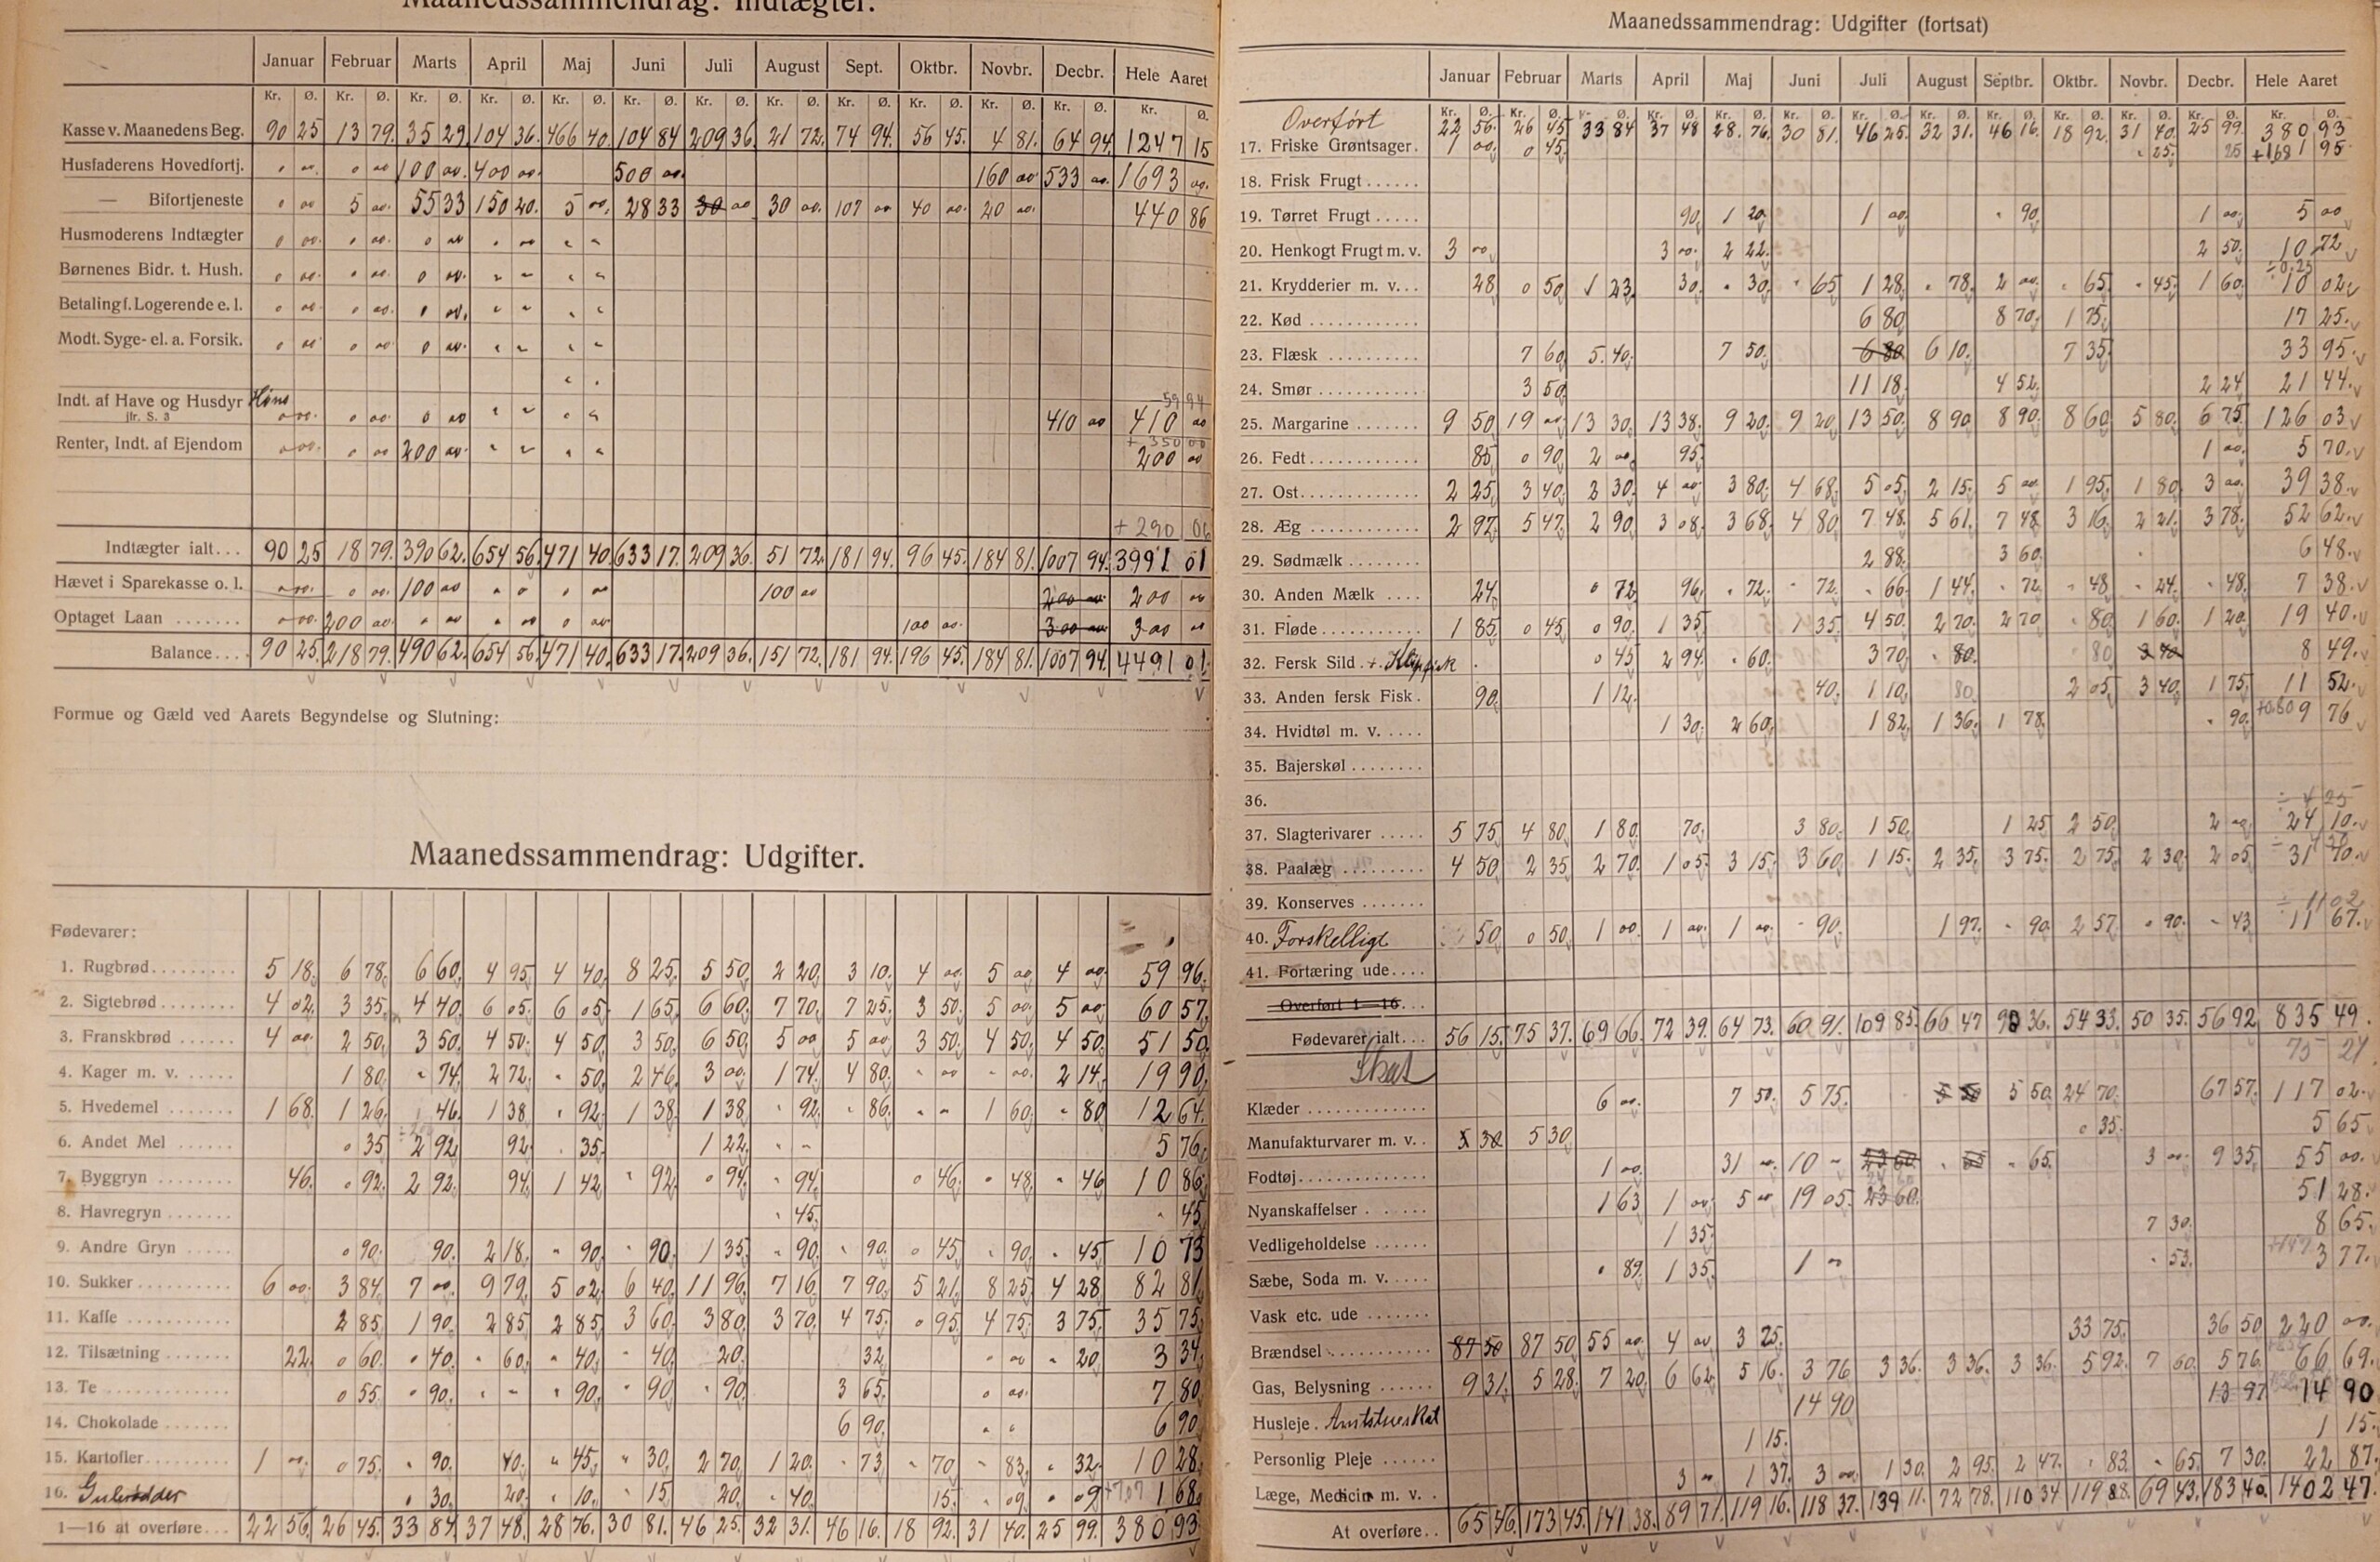 Maanedssammendrag: Indtægter.
Januar Februar Marts April Maj Juni Juli August Sept. Oktbr. Novbr. Decbr. Hele Aaret
Kr. Ø. Kr. Ø. Kr. Ø. Kr. Ø. Kr. Ø. Kr. Ø. Kr. Ø. Kr. Ø. Kr. Ø. Kr. Ø. Kr. Ø. Kr. Ø. Kr. Ø.
Kasse v. Maanedens Beg. 90 25 13 79. 35 29 104 36. 466 40. 104 84 209 36. 21 72. 74 94. 56 45. 4 81. 64 94 1247 15
Husfaderens Hovedfortj. 100 00. 400 00. 500 00. 160 00 533 00. 1693 00.
— Bifortjeneste 5 00. 55 33 150 20. 5 00. 28 33 30 00 30 00. 107 00 40 00. 20 00. 440 86
Husmoderens Indtægter
Børnenes Bidr. t. Hush.
Betaling f. Logerende e. l.
Modt. Syge- el. a. Forsik.
Indt. af Have og Husdyr Høns 410 00 410 00
jfr. S. 3
Renter, Indt. af Ejendom 200 00. 200 00
+ 290 06
Indtægter ialt... 90 25 18 79. 390 62. 654 56 471 40. 633 17. 209 36. 51 72. 181 94. 96 45. 184 81. 1007 94. 3991 01
Hævet i Sparekasse o. l. 100 00 100 00 200 00 200 00
Optaget Laan ....... 200 00. 100 00. 300 00 300 00
Balance.... 90 25. 218 79. 490 62. 654 56. 471 40. 633 17. 209 36. 151 72. 181 94. 196 45. 184 81. 1007 94. 4491 01.
Formue og Gæld ved Aarets Begyndelse og Slutning:
Maanedssammendrag: Udgifter.
Fødevarer:
1. Rugbrød......... 5 18. 6 78. 6 60. 4 95 4 40. 8 25. 5 50. 2 20. 3 10. 4 00. 5 00 4 00. 59 96.
2. Sigtebrød........ 4 02. 3 35. 4 40. 6 05. 6 05. 1 65. 6 60. 7 70. 7 25. 3 50. 5 00. 5 00. 60 57.
3. Franskbrød ...... 4 00. 2 50. 3 50. 4 50. 4 50. 3 50. 6 50. 5 00 5 00. 3 50. 4 50. 4 50. 51 50.
4. Kager m. v. ..... 1 80. 74. 2 72. 50. 2 46. 3 00. 1 74. 4 80. 2 14. 19 90.
5. Hvedemel ....... 1 68. 1 26. 46. 1 38 92. 1 38. 1 38. 92. 86. 1 60. 80 12 64.
6. Andet Mel ...... 35 2 92 92. 35. 1 22. 5 76.
7. Byggryn ........ 46. 92. 2 92. 94. 1 42. 92. 94. 94. 46. 48. 46 10 86.
8. Havregryn ....... 45. 45
9. Andre Gryn ..... 90. 90. 2 18. 90. 90. 1 35. 90. 90. 45. 90. 45 10 73
10. Sukker.......... 6 00. 3 84. 7 00. 9 79. 5 02. 6 40. 11 96. 7 16. 7 90. 5 21. 8 25. 4 28. 82 81.
11. Kaffe ........... 2 85. 1 90. 2 85. 2 85. 3 60. 3 80. 3 70. 4 75. 95. 4 75. 3 75. 35 75.
12. Tilsætning....... 22. 60. 40. 60. 40. 40. 20. 32 20 3 34.
13. Te ............. 55. 90. 90. 90. 90. 3 65. 7 80.
14. Chokolade ....... 6 90. 6 90.
15. Kartofler......... 1 75. 90. 40. 45. 30. 2 70. 1 20. 73. 70 83. 32. 10 28.
16. Gulerødder 30. 20. 10. 15. 20. 40. 15. 09. 09 1 68.
1—16 at overføre... 22 56. 26 45. 33 84. 37 48. 28 76. 30 81. 46 25. 32 31. 46 16. 18 92. 31 40. 25 99. 380 93.
Maanedssammendrag: Udgifter (fortsat)
Januar Februar Marts April Maj Juni Juli August Septbr. Oktbr. Novbr. Decbr. Hele Aaret
Kr. Ø. Kr. Ø. Kr. Ø. Kr. Ø. Kr. Ø. Kr. Ø. Kr. Ø. Kr. Ø. Kr. Ø. Kr. Ø. Kr. Ø. Kr. Ø. Kr. Ø.
Overført 22 56. 26 45 33 84 37 48 28. 76. 30 81. 46 25. 32 31. 46 16. 18 92. 31 40. 25 99. 380 93
17. Friske Grøntsager. 1 00. 45. 25. 25 1 95
18. Frisk Frugt ......
19. Tørret Frugt ..... 90. 1 20. 1 00. 90. 1 00. 5 00
20. Henkogt Frugt m. v. 3 00. 3 00. 2 22. 2 50. 10 72
21. Krydderier m. v... 28 50. 1 23. 30. 30. 65 1 28. 78. 2 00. 65. 45. 1 60. 10 02
22. Kød ............ 6 80. 8 70. 1 75. 17 25.
23. Flæsk .......... 7 60. 5. 40. 7 50. 6 80 6 10. 7 35. 33 95.
24. Smør ........... 3 50. 11 18. 4 52. 2 24 21 44.
25. Margarine ....... 9 50 19 00. 13 30. 13 38. 9 20. 9 20. 13 50. 8 90 8 90. 8 60. 5 80. 6 75. 126 03
26. Fedt............ 85 90. 2 00. 95. 1 00. 5 70.
27. Ost............. 2 25. 3 40. 2 30. 4 00. 3 80. 4 68. 5 05. 2 15. 5 00. 1 95. 1 80. 3 00. 39 38.
28. Æg ............ 2 97. 5 47. 2 90. 3 08. 3 68. 4 80. 7 48. 5 61. 7 48. 3 16. 2 21. 3 78. 52 62.
29. Sødmælk ........ 2 88. 3 60. 6 48.
30. Anden Mælk .... 24. 72 96. 72. 72. 66. 1 44. 72. 48. 24. 48. 7 38.
31. Fløde........... 1 85. 45. 90. 1 35 1 35. 4 50. 2 70. 2 70 80. 1 60. 1 20. 19 40.
32. Fersk Sild . + Klipfisk 45 2 94. 60. 3 70. 80. 80 3 40 8 49.
33. Anden fersk Fisk. 90. 1 12. 40. 1 10. 80. 2 05. 3 40. 1 75. 11 52.
34. Hvidtøl m. v. .... 1 30. 2 60. 1 82. 1 36. 1 78. 90. 9 76
35. Bajerskøl ........
36.
37. Slagterivarer ..... 5 75 4 80. 1 80. 70. 3 80. 1 50. 1 25 2 50. 2 00 24 10.
38. Paalæg ......... 4 50 2 35 2 70. 1 05. 3 15. 3 60. 1 15. 2 35. 3 75. 2 75. 2 30. 2 05. 31 70.
39. Konserves .......
40. Forskelligt 50. 50. 1 00. 1 00. 1 00. 90. 1 97. 90 2 57. 90. 43 11 67.
41. Fortæring ude....
Overført 1—16...
Fødevarer ialt... 56 15. 75 37. 69 66. 72 39. 64 73. 60 91. 109 85. 66 47 90 36. 54 33. 50 35. 56 92 835 49.
Skat 75 27
Klæder ............ 6 00. 7 50. 5 75. 5 50 24 70. 67 57. 117 02.
Manufakturvarer m. v. . 5 30 5 30 35. 5 65
Fodtøj............. 1 00. 31 10 65. 3 00 9 35. 55 00.
Nyanskaffelser . . .... 1 63 1 00 5 00 19 05. 23 60. 51 28.
Vedligeholdelse ...... 1 35. 7 30. 8 65.
Sæbe, Soda m. v. .... 89. 1 35. 1 53. 3 77.
Vask etc. ude .......
Brændsel ........... 87 50 87 50 55 00. 4 00 3 25. 33 75. 36 50 220 00.
Gas, Belysning ...... 9 31. 5 28. 7 20. 6 62. 5 16. 3 76 3 36. 3 36. 3 36. 5 92. 7 60. 5 76. 66 69.
Husleje . Amtstueskat 14 90 13 97 14 90
Personlig Pleje ...... 1 15. 1 15.
Læge, Medicin m. v. . 3 00 1 37. 3 00. 1 30. 2 95. 2 47. 83. 65. 7 30. 22 87.
At overføre.. 65 46. 173 45. 141 38. 89 71. 119 16. 118 37. 139 11. 72 78. 110 34 119 88. 69 43. 183 40. 1402 47.